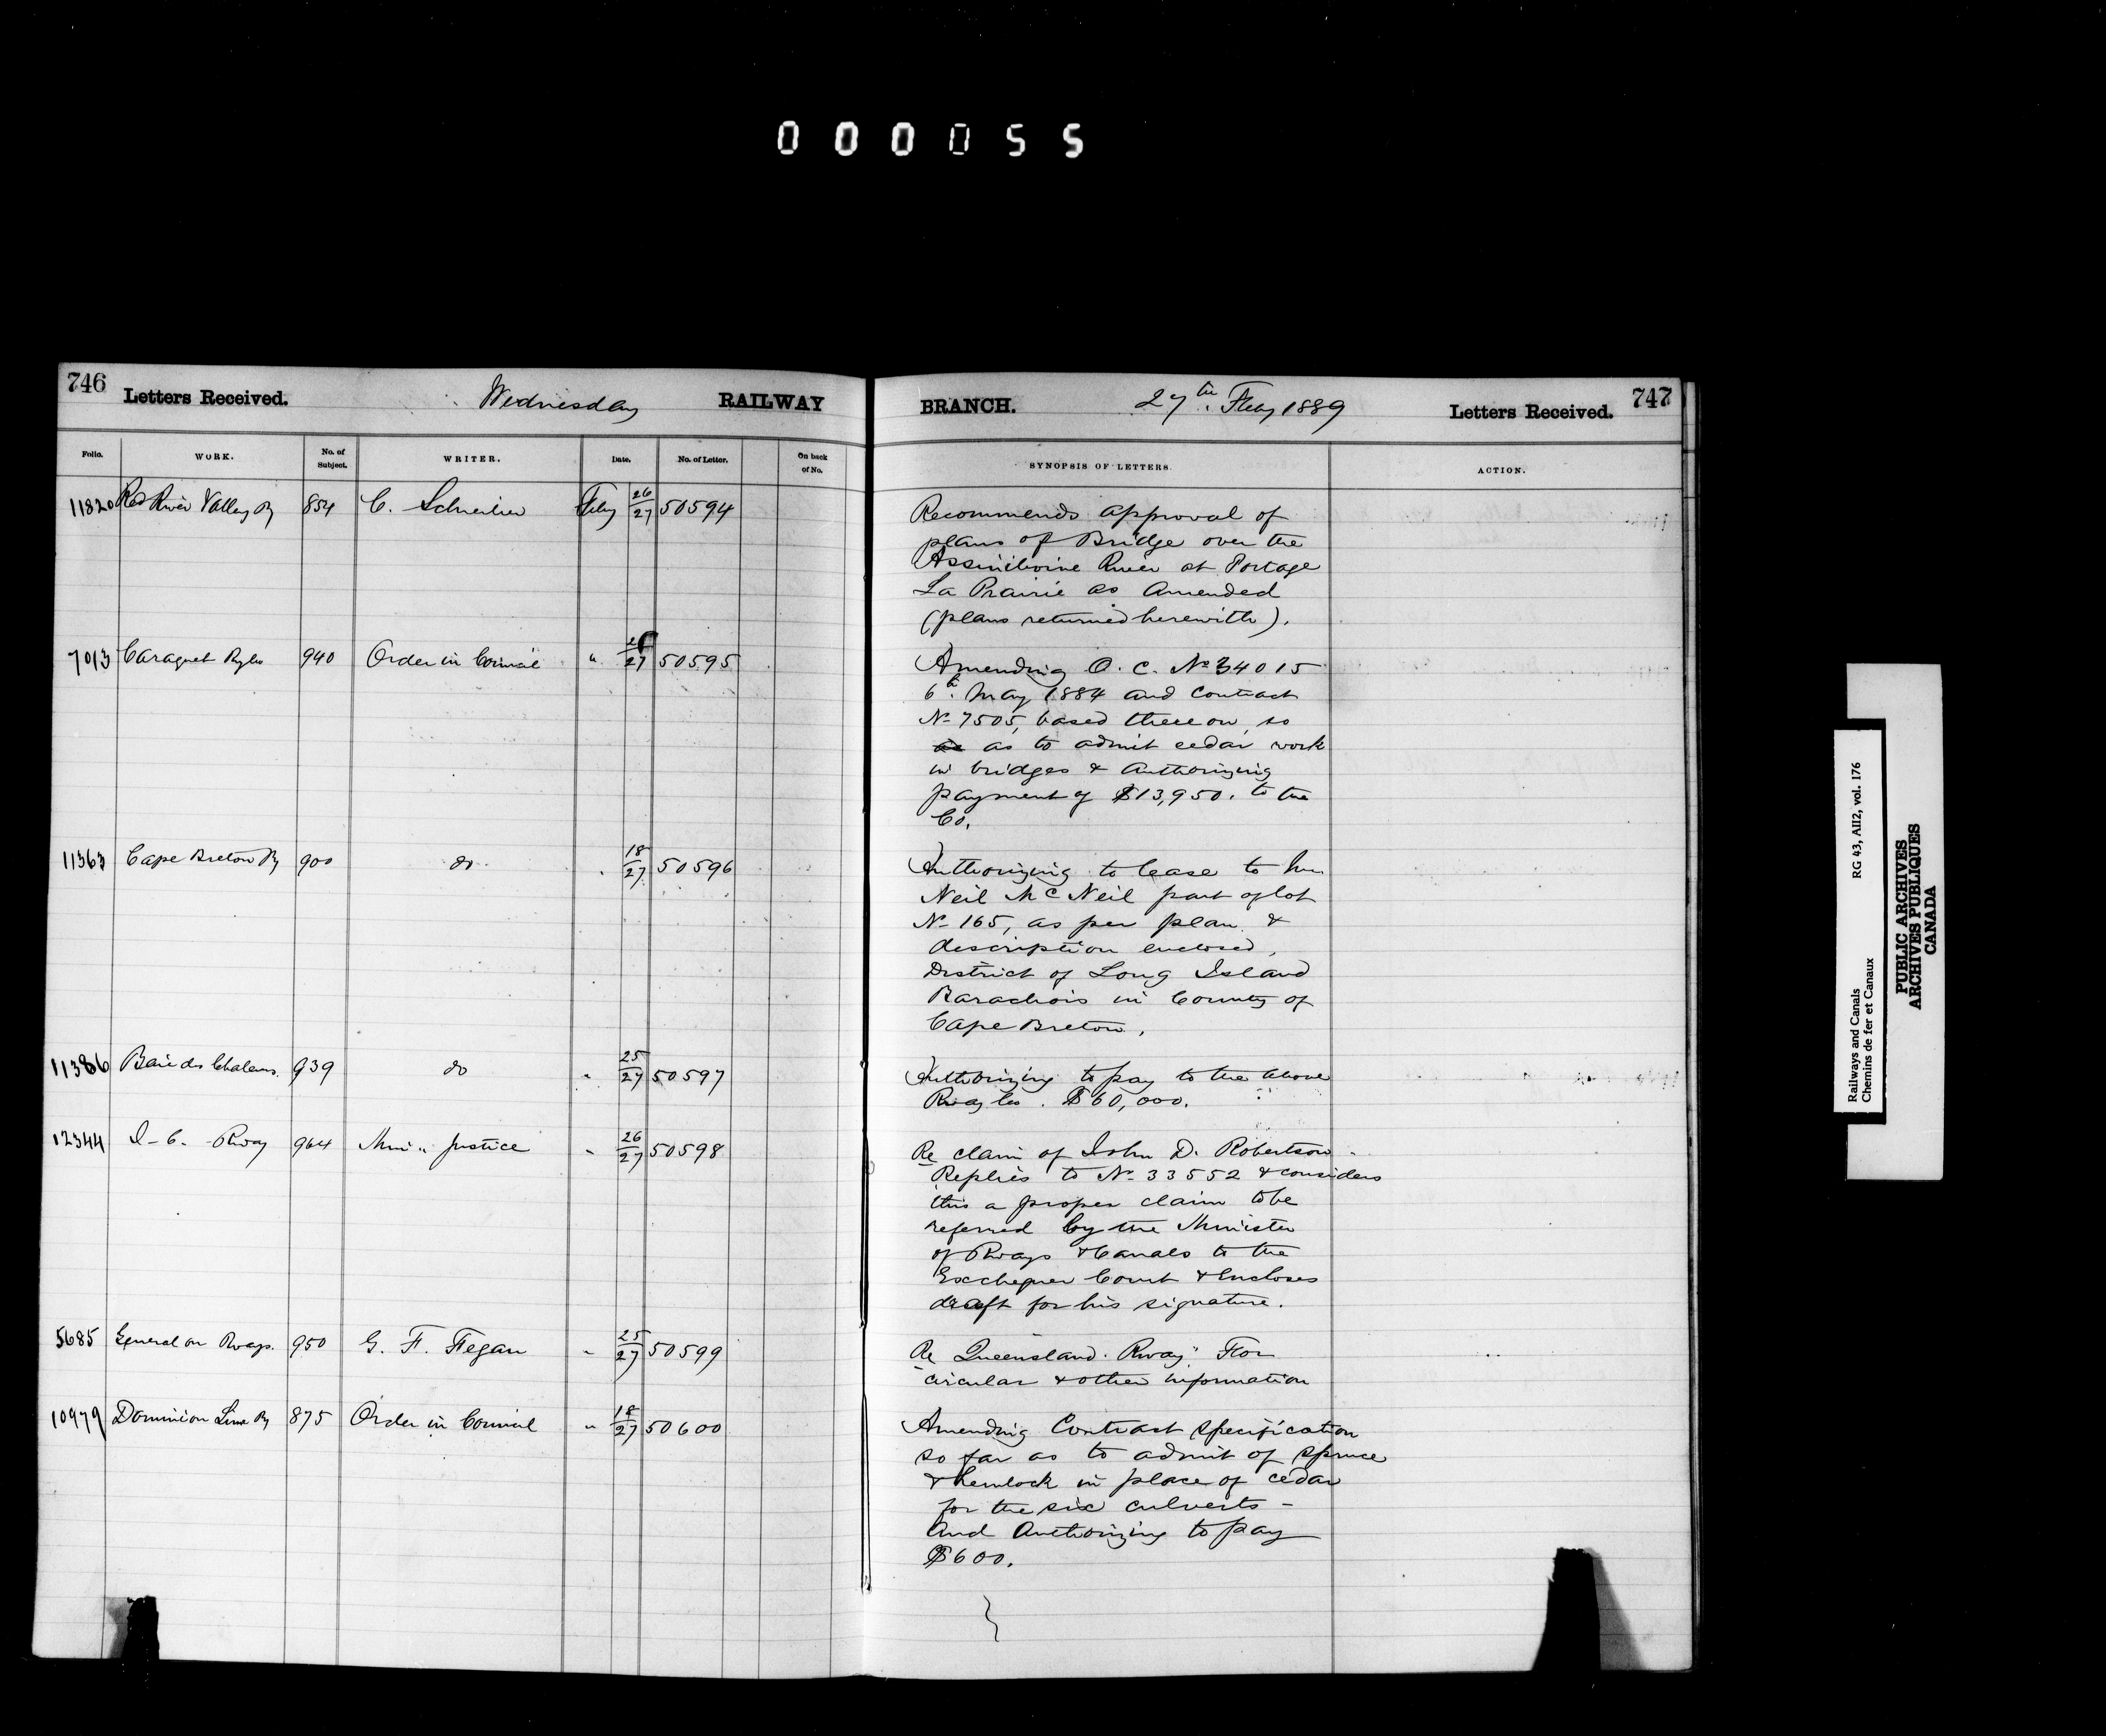 000055
746 Letters Received. Wednesday RAILWAY
BRANCH. 27th Feby 1889 Letters Received. 747
Folio. WORK. No. of Subject. WRITER. Date. No. of Letter. On back of No.
SYNOPSIS OF LETTERS. ACTION.
11820 Red River Valley Ry 854 C. Schreiber Feby 26/27 50594
Recommends approval of
plans of Bridge over the
Assiniboine River at Portage
La Prairie as Amended
(plans returned herewith).
7013 Caraquet Ry Co 940 Order in Council " 27 50595
Amending O. C. No 34015
6th May 1884 and Contract
No 7505, based thereon, so
as to admit cedar work
in bridges & Authorizing
payment of $13,950. to the
Co.
11363 Cape Breton Ry 900 do " 18/27 50596
Authorizing to lease to
Neil McNeil part of lot
No 165, as per plan &
description enclosed,
District of Long Island
Barachois in County of
Cape Breton,
11386 Baie des Chaleurs. 939 do " 25/27 50597
Authorizing to pay to the above
Rway Co. $60,000.
12344 I-C. Rway 964 Min " Justice " 26/27 50598
Re claim of John D. Robertson
Replies to No 33552 & considers
this a proper claim to be
referred by the Minister
of Rways & Canals to the
Exchequer Court & Encloses
draft for his signature.
5685 General on Rways. 950 G. F. Fegan " 25/27 50599
Re Queensland Rways For
circular & other information
10979 Dominion Lime Ry 875 Order in Council " 18/27 50600
Amending Contract Specification
so far as to admit of Spruce
& hemlock in place of cedar
for the six culverts –
And Authorizing to pay
$600.
Railways and Canals RG 43, AII2, vol. 176
Chemins de fer et Canaux
PUBLIC ARCHIVES
ARCHIVES PUBLIQUES
CANADA